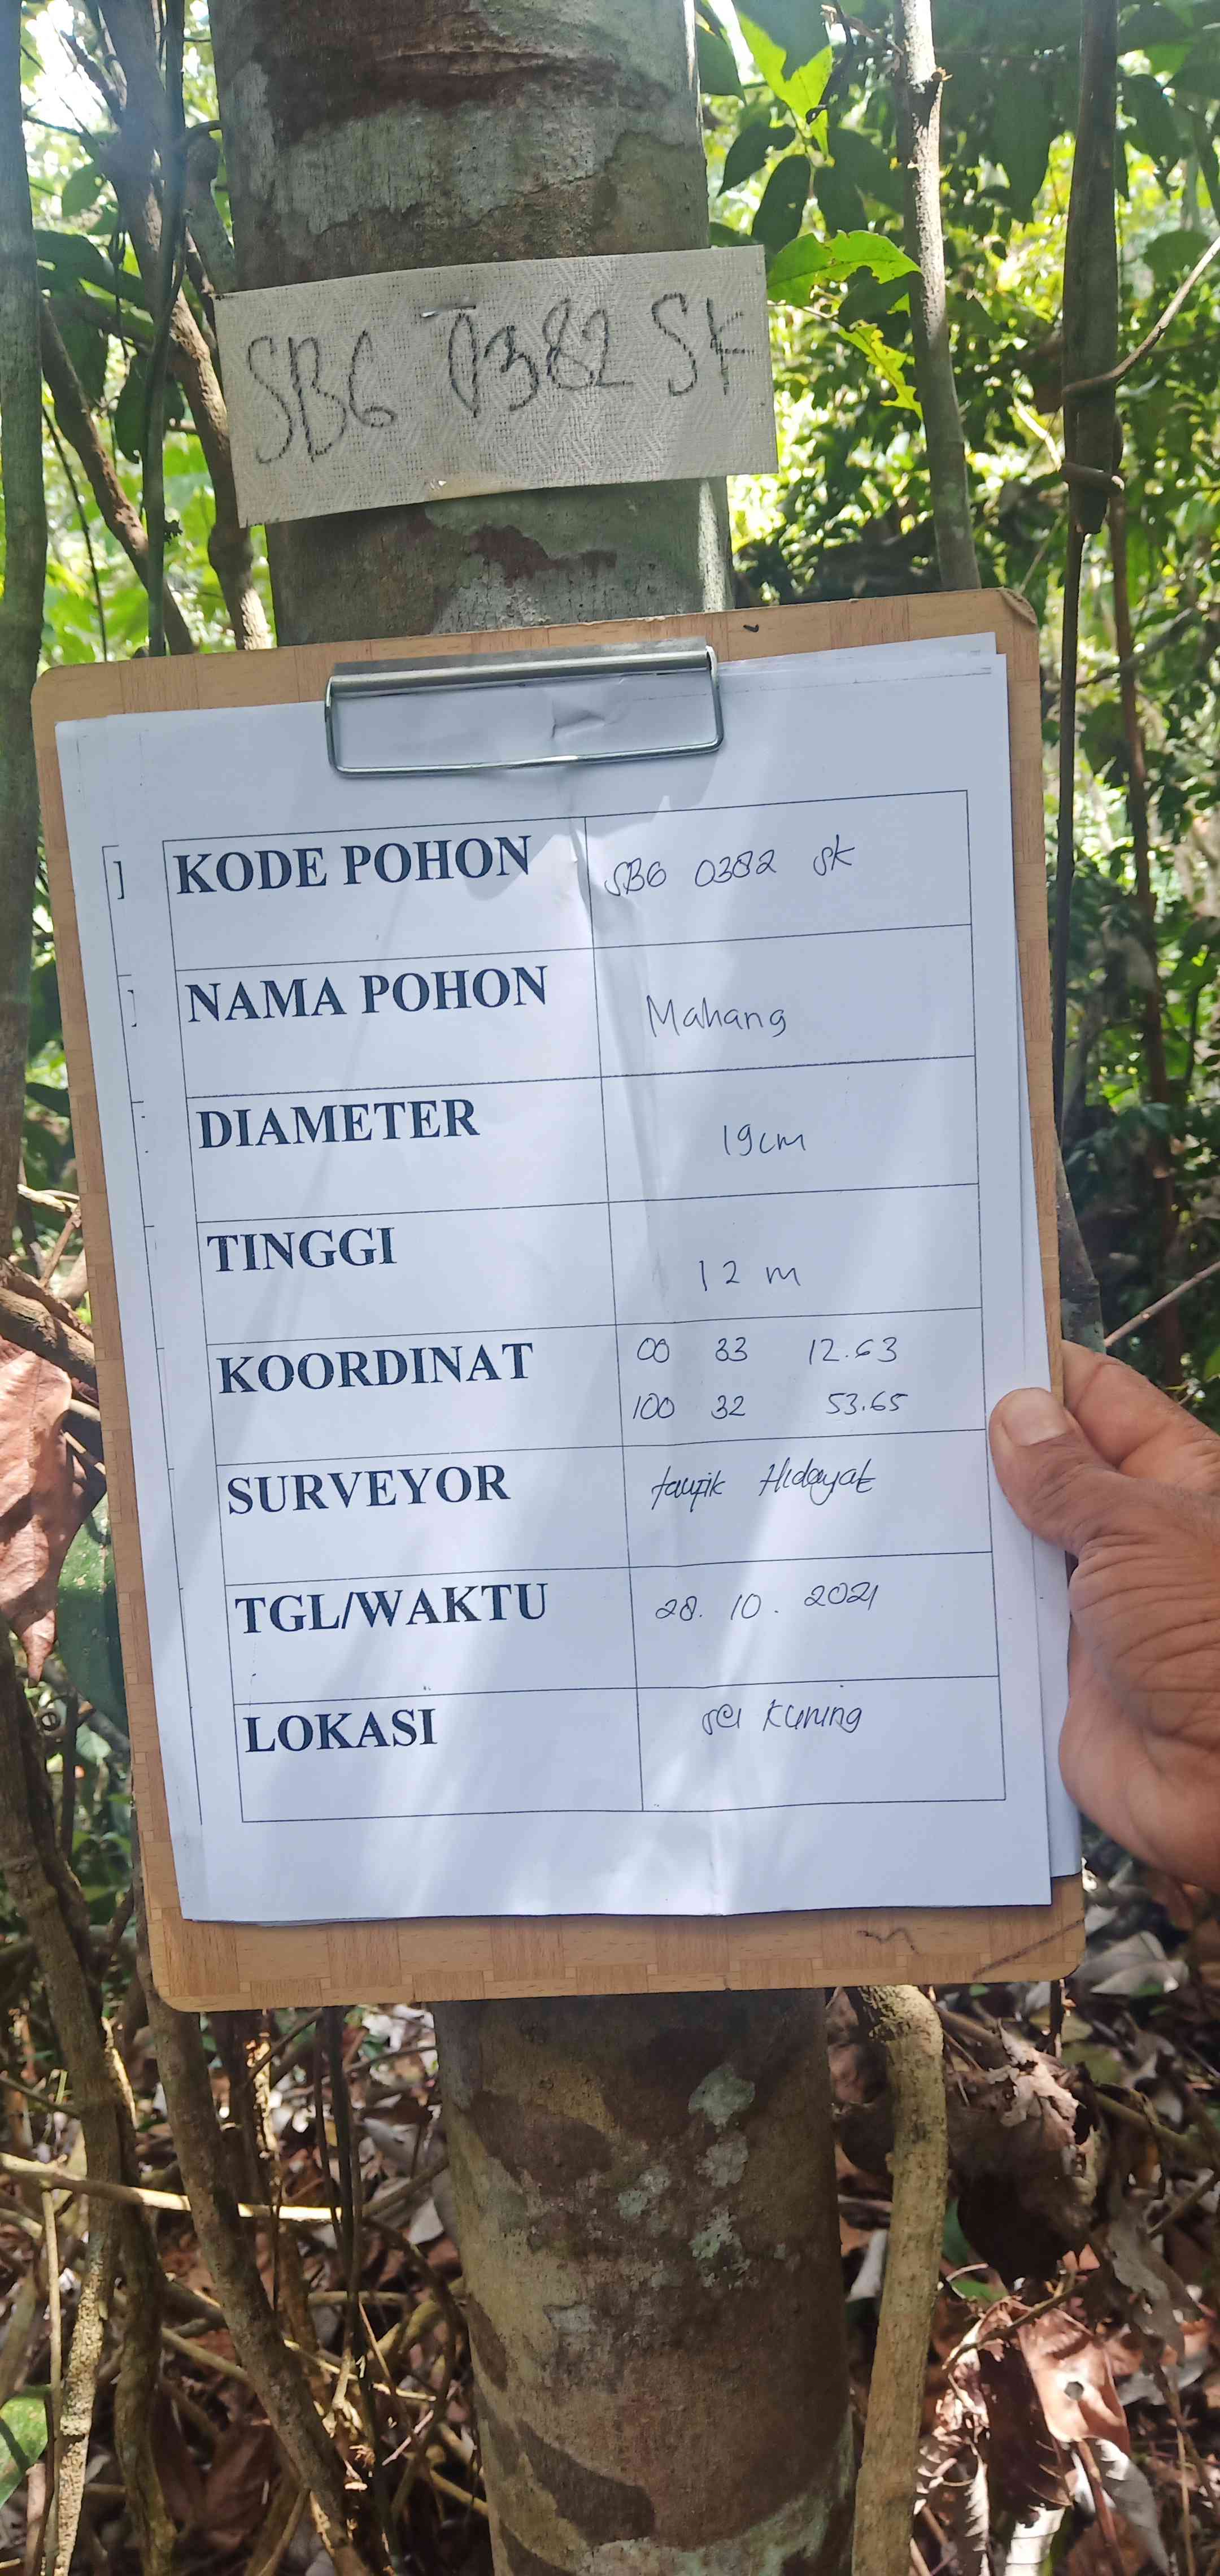 SBG 0382 SK
KODE POHON SBG 0382 SK
NAMA POHON Mahang
DIAMETER 19cm
TINGGI 12 m
KOORDINAT 00 33 12.63
100 32 53.65
SURVEYOR taupik Hidayat
TGL/WAKTU 28. 10. 2021
LOKASI sei kuning